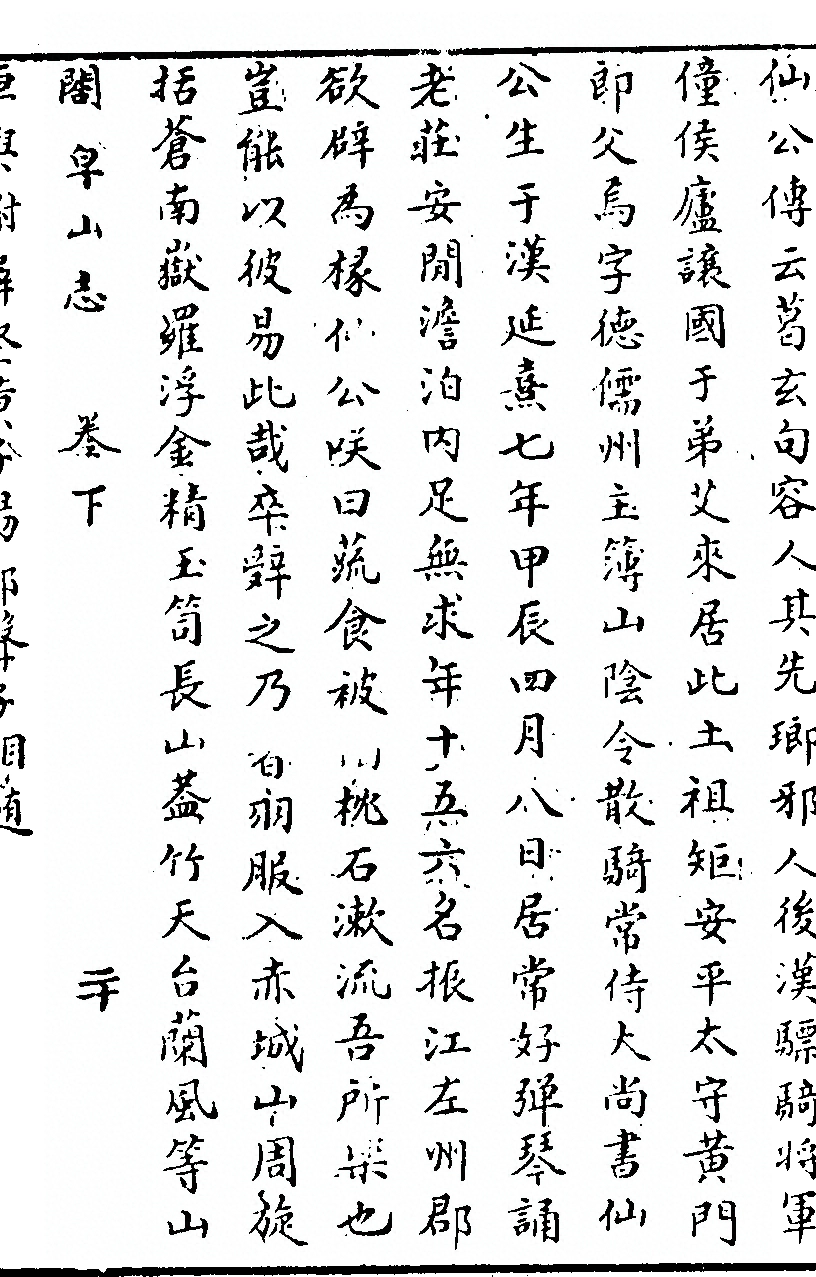 仙公傳云葛玄句容人其先瑯邪人後漢驃騎將軍
僮侯廬讓國于弟艾來居此土祖矩安平太守黃門
郎父焉字德儒州主簿山陰令散騎常侍大尚書仙
公生于漢延熹七年甲辰四月八日居常好彈琴誦
老莊安閒澹泊內足無求年十五六名振江左州郡
欲辟為掾仙公咲曰蔬食被 枕石漱流吾所樂也
豈能以彼易此哉卒辭之乃 羽服入赤城山周旋
括蒼南嶽羅浮金精玉笥長山蓋竹天台蘭風等山
閤皁山志 卷下 二十